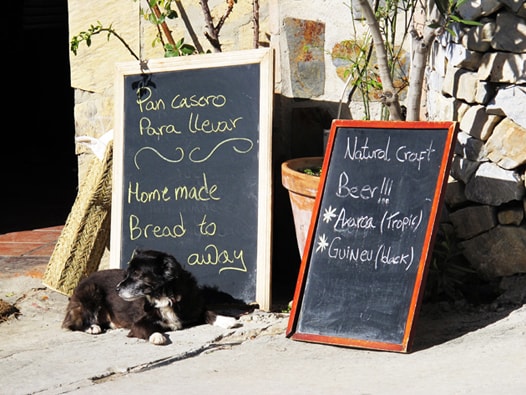 Pan casero
Para llevar
Homemade
Bread to
away
Natural Craft
Beer!!!
* Axarca (Tropic)
* Guineu (black)